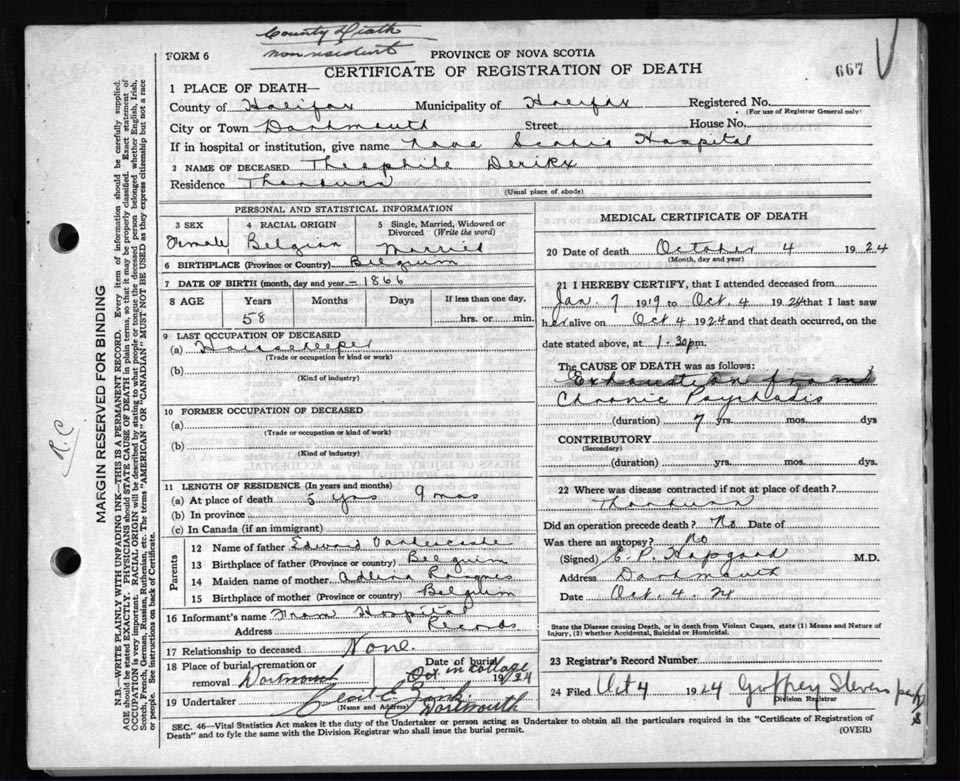 County Death
non resident
FORM 6
PROVINCE OF NOVA SCOTIA
CERTIFICATE OF REGISTRATION OF DEATH
667
1 PLACE OF DEATH—
County of Halifax Municipality of Halifax Registered No.
(For use of Registrar General only)
City or Town Dartmouth Street House No.
If in hospital or institution, give name Nova Scotia Hospital
2 NAME OF DECEASED Theophile Derikx
Residence Thorburn
(Usual place of abode)
PERSONAL AND STATISTICAL INFORMATION
3 SEX
Female
4 RACIAL ORIGIN
Belgian
5 Single, Married, Widowed or Divorced (Write the word)
Married
6 BIRTHPLACE (Province or Country) Belgium
7 DATE OF BIRTH (month, day and year — 1866
8 AGE Years Months Days If less than one day,
58 hrs. or min.
9 LAST OCCUPATION OF DECEASED
(a) Housekeeper
(Trade or occupation or kind or work)
(b)
(Kind of industry)
10 FORMER OCCUPATION OF DECEASED
(a)
(Trade or occupation or kind of work)
(b)
(Kind of industry)
11 LENGTH OF RESIDENCE (In years and months)
(a) At place of death 5 yrs 9 mos
(b) In province
(c) In Canada (if an immigrant)
Parents
12 Name of father Edward
13 Birthplace of father (Province or Country) Belgium
14 Maiden name of mother Adlina
15 Birthplace of mother (Province or Country) Belgium
16 Informant's name From Hospital
Address Records
17 Relationship to deceased None.
18 Place of burial, cremation or removal Dartmouth
Date of burial
Oct. in 19/24
19 Undertaker Cecil E. Zink
(Name and Address) Dartmouth
MEDICAL CERTIFICATE OF DEATH
20 Date of death October 4 1924
(Month, day and year)
21 I HEREBY CERTIFY, that I attended deceased from
Jan. 7 1919 to Oct. 4 1924 that I last saw
her alive on Oct 4 1924 and that death occurred, on the
date stated above, at 1.30 pm.
The CAUSE OF DEATH was as follows:
Exhaustion from
Chronic Psychosis
(duration) 7 yrs. mos. dys
CONTRIBUTORY
(Secondary)
(duration) yrs. mos. dys.
22 Where was disease contracted if not at place of death?
Thorburn
Did an operation precede death? No Date of
Was there an autopsy? No
(Signed) E. P. Hapgood M.D.
Address Dartmouth
Date Oct. 4. 24
State the Disease causing Death, or in death from Violent Causes, state (1) Means and Nature of Injury, (2) whether Accidental, Suicidal or Homicidal.
23 Registrar's Record Number
24 Filed Oct 4 1924 Godfrey Stevens
Division Registrar
SEC. 46—Vital Statistics Act makes it the duty of the Undertaker or person acting as Undertaker to obtain all the particulars required in the "Certificate of Registration of
Death" and to fyle the same with the Division Registrar who shall issue the burial permit.
(OVER)
MARGIN RESERVED FOR BINDING
R.C
N.B.—WRITE PLAINLY WITH UNFADING INK—THIS IS A PERMANENT RECORD. Every item of information should be carefully supplied.
AGE should be stated EXACTLY. PHYSICIANS should STATE CAUSE OF DEATH in plain terms, so that it may be properly classified. Exact statement of
OCCUPATION is very important. RACIAL ORIGIN will be described by stating to what people or tongue the deceased person belonged whether English, Irish,
Scotch, French, German, Russian, Ruthenian, etc. The terms "AMERICAN" OR "CANADIAN" MUST NOT BE USED as they express citizenship but not a race
or people. See instructions on back of Certificate.